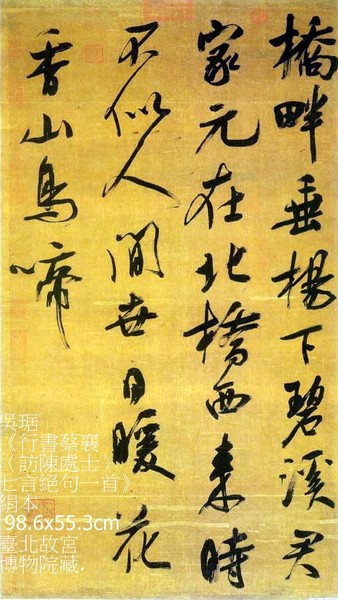 橋畔垂楊下碧溪君
家元在北橋西來時
不似人間世日暖花
香山鳥啼
吳琚
《行書蔡襄
〈訪陳處士〉
七言絕句一首》
絹本
98.6x55.3cm
臺北故宮
博物院藏.